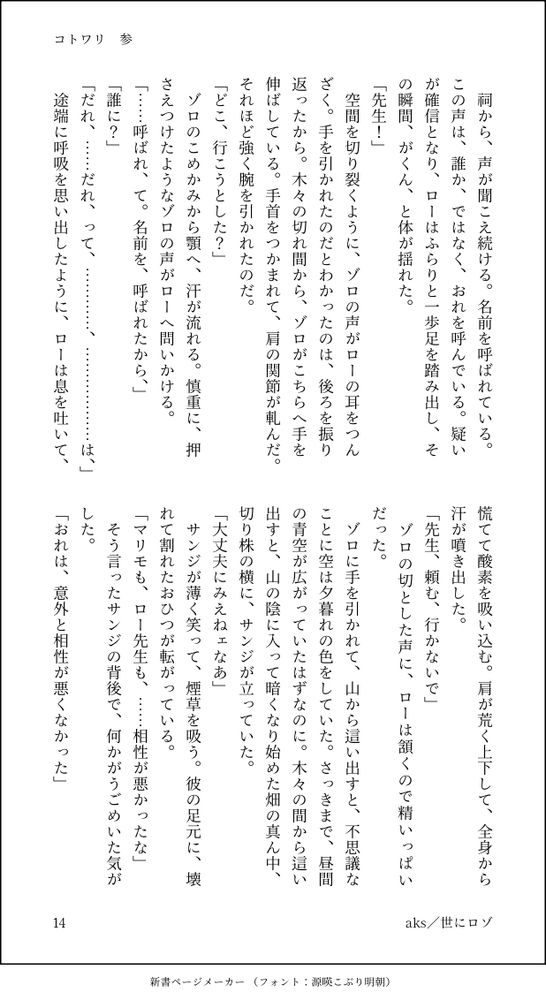 コトワリ　参
　祠から、声が聞こえ続ける。名前を呼ばれている。
この声は、誰か、ではなく、おれを呼んでいる。疑い
が確信となり、ローはふらりと一歩足を踏み出し、そ
の瞬間、がくん、と体が揺れた。
「先生！」
　空間を切り裂くように、ゾロの声がローの耳をつん
ざく。手を引かれたのだとわかったのは、後ろを振り
返ったから。木々の切れ間から、ゾロがこちらへ手を
伸ばしている。手首をつかまれて、肩の関節が軋んだ。
それほど強く腕を引かれたのだ。
「どこ、行こうとした？」
　ゾロのこめかみから顎へ、汗が流れる。慎重に、押
さえつけたようなゾロの声がローへ問いかける。
「……呼ばれ、て。名前を、呼ばれたから、」
「誰に？」
「だれ、……だれ、って、…………、………………は、」
　途端に呼吸を思い出したように、ローは息を吐いて、
慌てて酸素を吸い込む。肩が荒く上下して、全身から
汗が噴き出した。
「先生、頼む、行かないで」
　ゾロの切とした声に、ローは頷くので精いっぱい
だった。
　ゾロに手を引かれて、山から這い出すと、不思議な
ことに空は夕暮れの色をしていた。さっきまで、昼間
の青空が広がっていたはずなのに。木々の間から這い
出すと、山の陰に入って暗くなり始めた畑の真ん中、
切り株の横に、サンジが立っていた。
「大丈夫にみえねェなあ」
　サンジが薄く笑って、煙草を吸う。彼の足元に、壊
れて割れたおひつが転がっている。
「マリモも、ロー先生も、……相性が悪かったな」
　そう言ったサンジの背後で、何かがうごめいた気が
した。
「おれは、意外と相性が悪くなかった」
14
aks／世にロゾ
新書ページメーカー（フォント：源暎こぶり明朝）